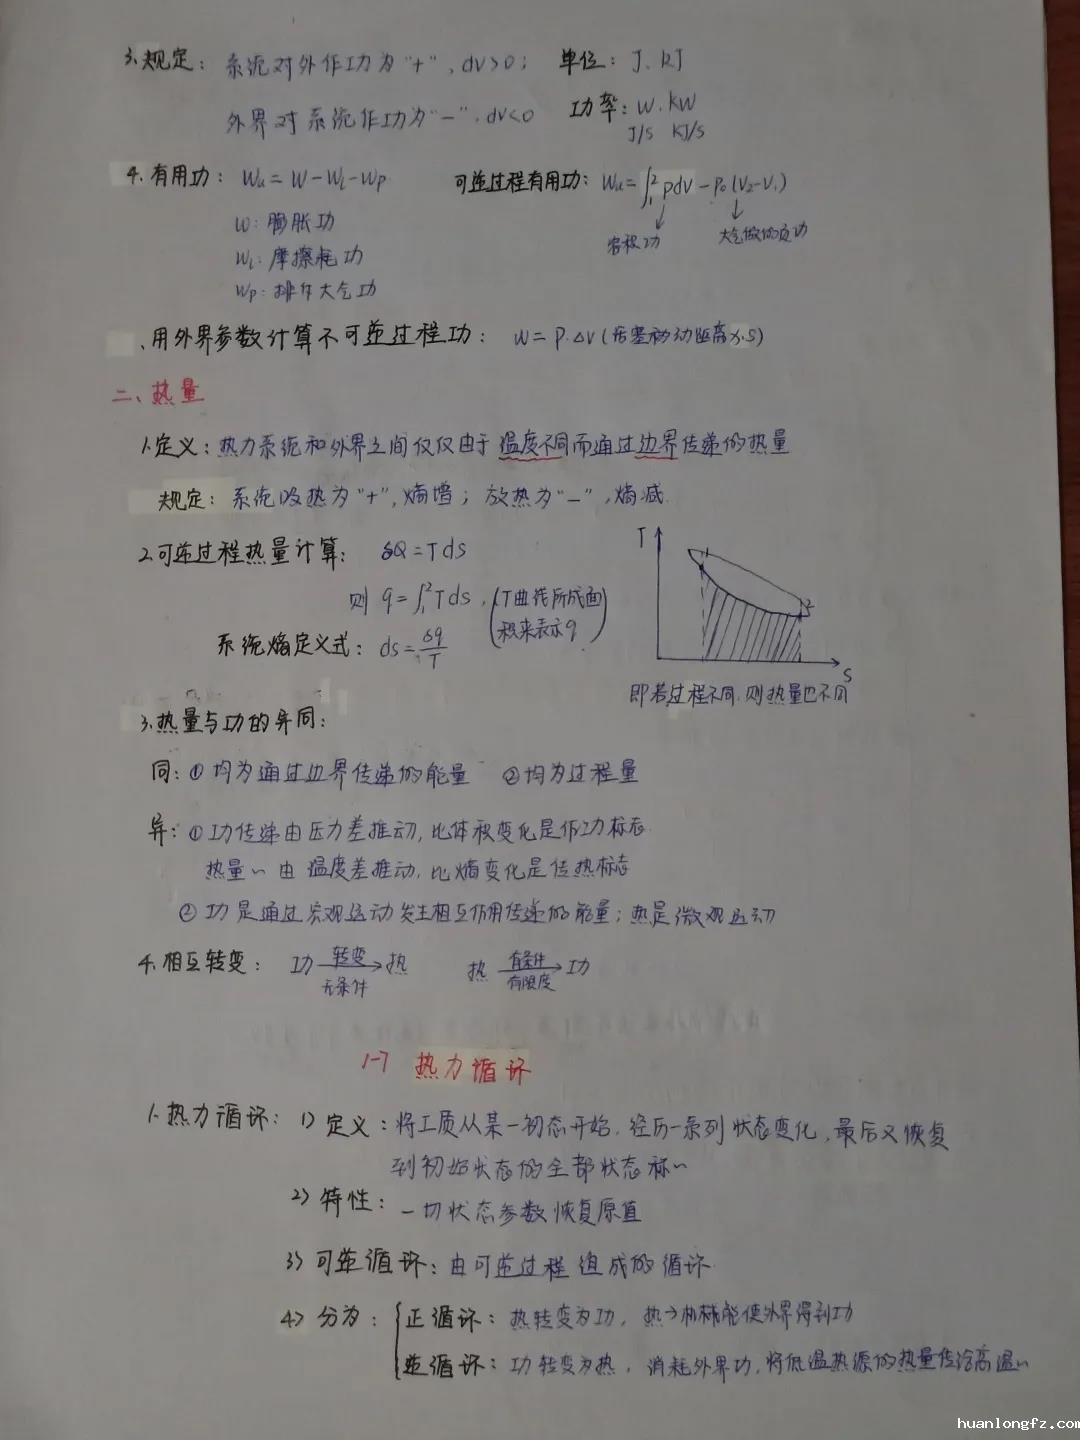 3.规定：系统对外作功为"+"，dv>0； 单位：J、kJ
外界对系统作功为"-"，dv<0 功率：W、KW
J/S KJ/S
4.有用功：Wu=W-Wl-Wp 可逆过程有用功：Wu=∫₁²pdv-p₀(V₂-V₁)
W：膨胀功 容积功 大气做的负功
Wl：摩擦耗功
Wp：排斥大气功
、用外界参数计算不可逆过程功： W=P·△V(活塞移动距离x·S)
二、热量
1.定义：热力系统和外界之间仅仅由于温度不同而通过边界传递的热量
规定：系统吸热为"+"，熵增；放热为"-"，熵减
2.可逆过程热量计算： δQ=Tds
则 q=∫₁²Tds，(T曲线所成面积来表示q)
系统熵定义式：ds=δq/T
T 1 2 S
即若过程不同，则热量也不同
3.热量与功的异同：
同：①均为通过边界传递的能量 ②均为过程量
异：①功传递由压力差推动，比体积变化是作功标志
热量～由温度差推动，比熵变化是传热标志
②功是通过宏观运动发生相互作用传递的能量；热是微观运动
4.相互转变： 功 转变 无条件 → 热 热 有条件 有限度 → 功
1-7 热力循环
1.热力循环：1)定义：将工质从某一初态开始，经历一系列状态变化，最后又恢复
到初始状态的全部状态称～
2)特性：一切状态参数恢复原值
3)可逆循环：由可逆过程组成的循环
4)分为：{正循环：热转变为功，热→机械能使外界得到功
逆循环：功转变为热，消耗外界功，将低温热源的热量传给高温～
huanlongfz.com